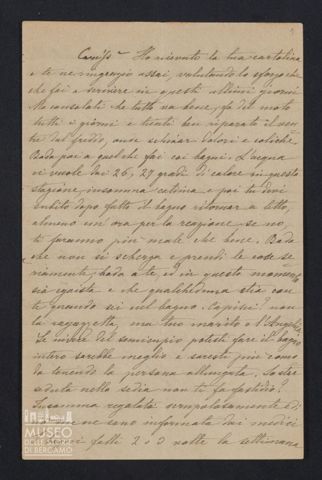 Cariss.ma Ho ricevuto la tua cartolina
e te ne ringrazio assai, valutando lo sforzo che
che fai a scrivere in questi ultimi giorni
Ma consolati che tutto va bene, fa del moto
tutti i giorni e tienti ben riparato il ven
tre dal freddo, onde schivar dolori e coliche.
Bada poi a quel che fai coi bagni. L'acqua
ci vuole dai 26, 27 gradi di calore in questa
stagione, insomma
e poi tu devi
subito dopo fatto il bagno ritornar a letto,
almeno un'ora per la reazione, se no,
ti faranno più male che bene. Bada
che non si scherza e prendi le cose se
riamente, bada a te, e in questo momento
sia egoista e che qualcheduna stia con
te quando sei nel bagno. Capisci? non
la ragazzetta, ma tuo marito o l'Angela
Se invece del semicupio potessi fare il bagno
intero sarebbe meglio e saresti più como
da tenendo la persona allungata. Lo star
seduta nella sedia non ti fa fastidio?
Insomma regolati scrupolosamente e di
ne sono informata dai medici
fatti 2 o 3 volte la settimana
MUSEO
DELLE STORIE
DI BERGAMO